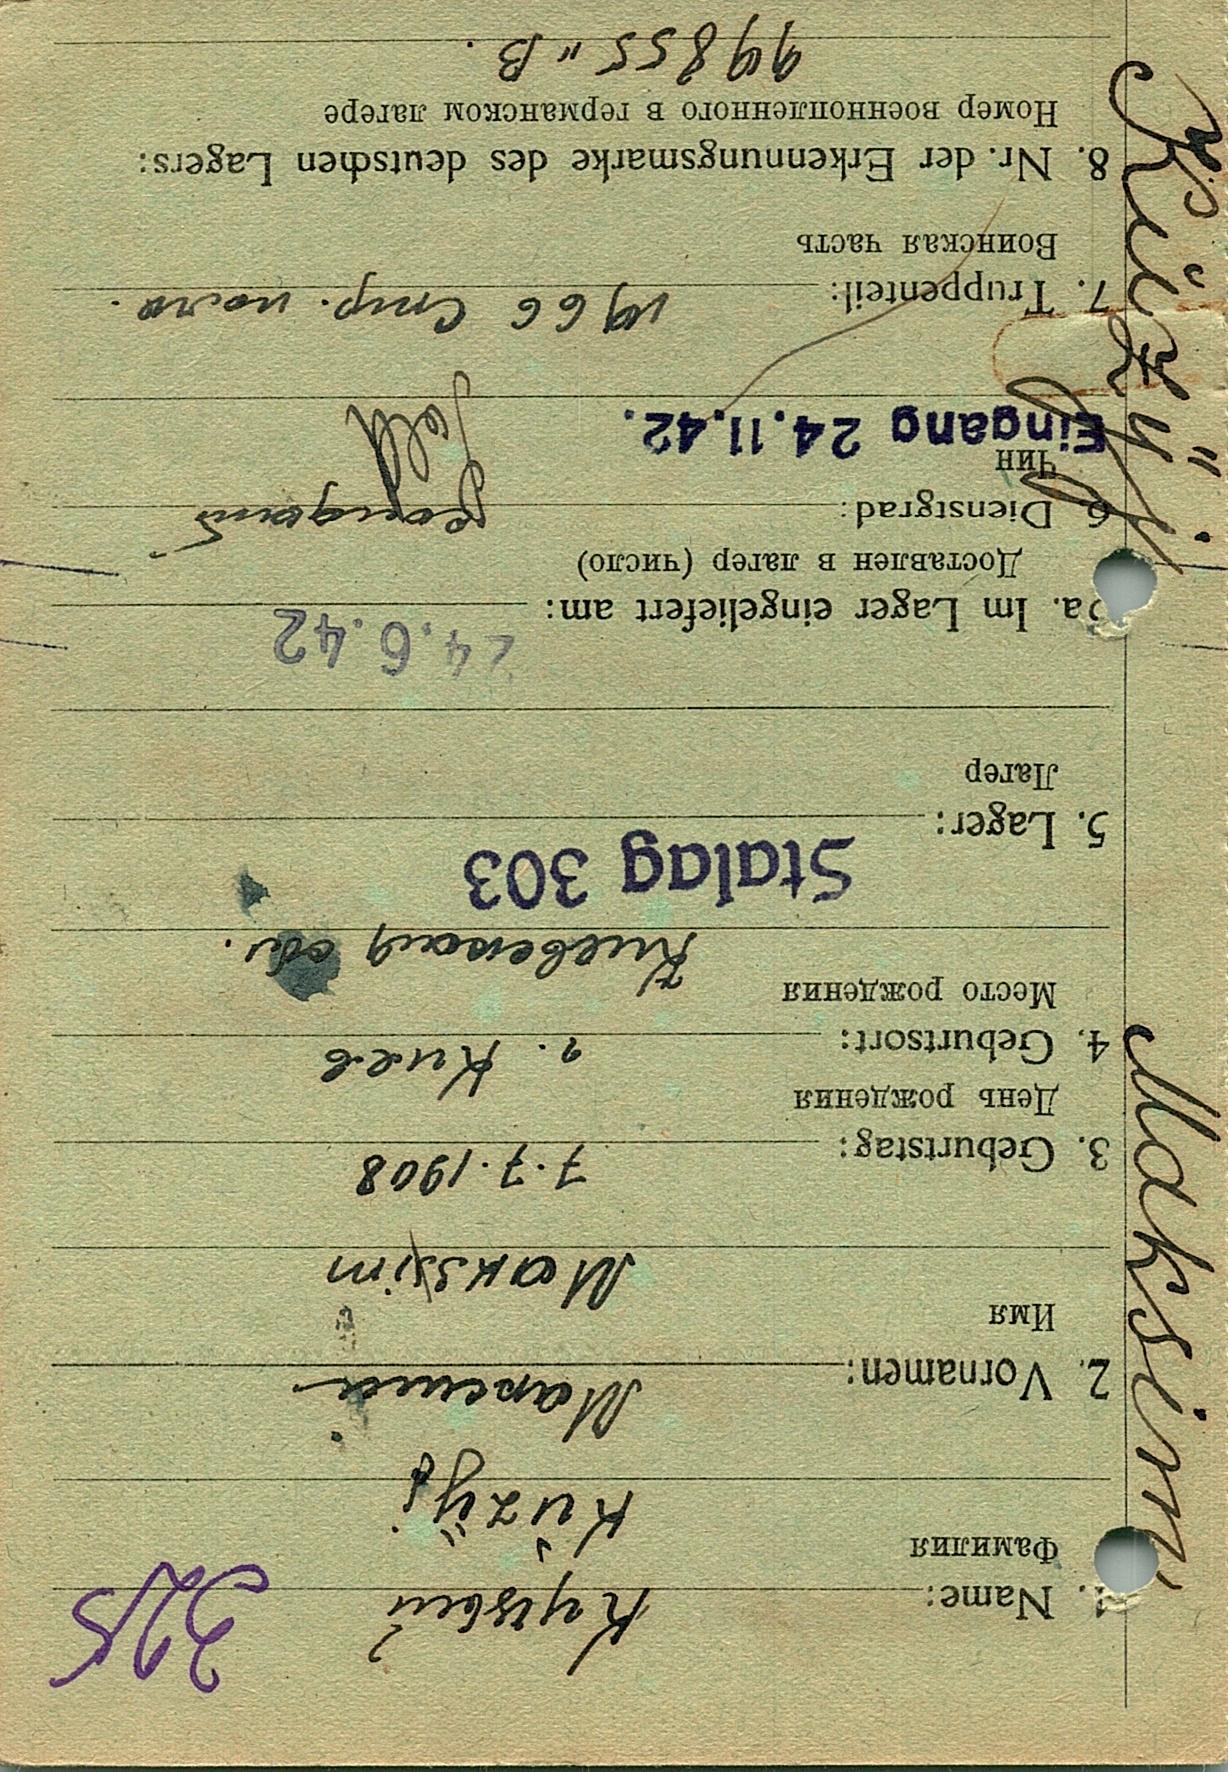 325
1. Name:
Куцый
Фамилия
Kuzÿj
2. Vornamen:
Максим
Имя
Maksim
3. Geburtstag: 7.7.1908
День рождения
4. Geburtsort: г. Киев
Место рождения
Киевская обл.
Stalag 303
5. Lager:
Лагер
5a. Im Lager eingeliefert am: 24.6.42
Доставлен в лагер (число)
6. Dienstgrad:
Чин
Sold
Eingang 24.11.42.
7. Truppenteil: 1966 Стр. полк.
Воинская часть
8. Nr. der Erkennungsmarke des deutschen Lagers:
Номер военнопленного в германском лагере
99855 "В.
Maksim